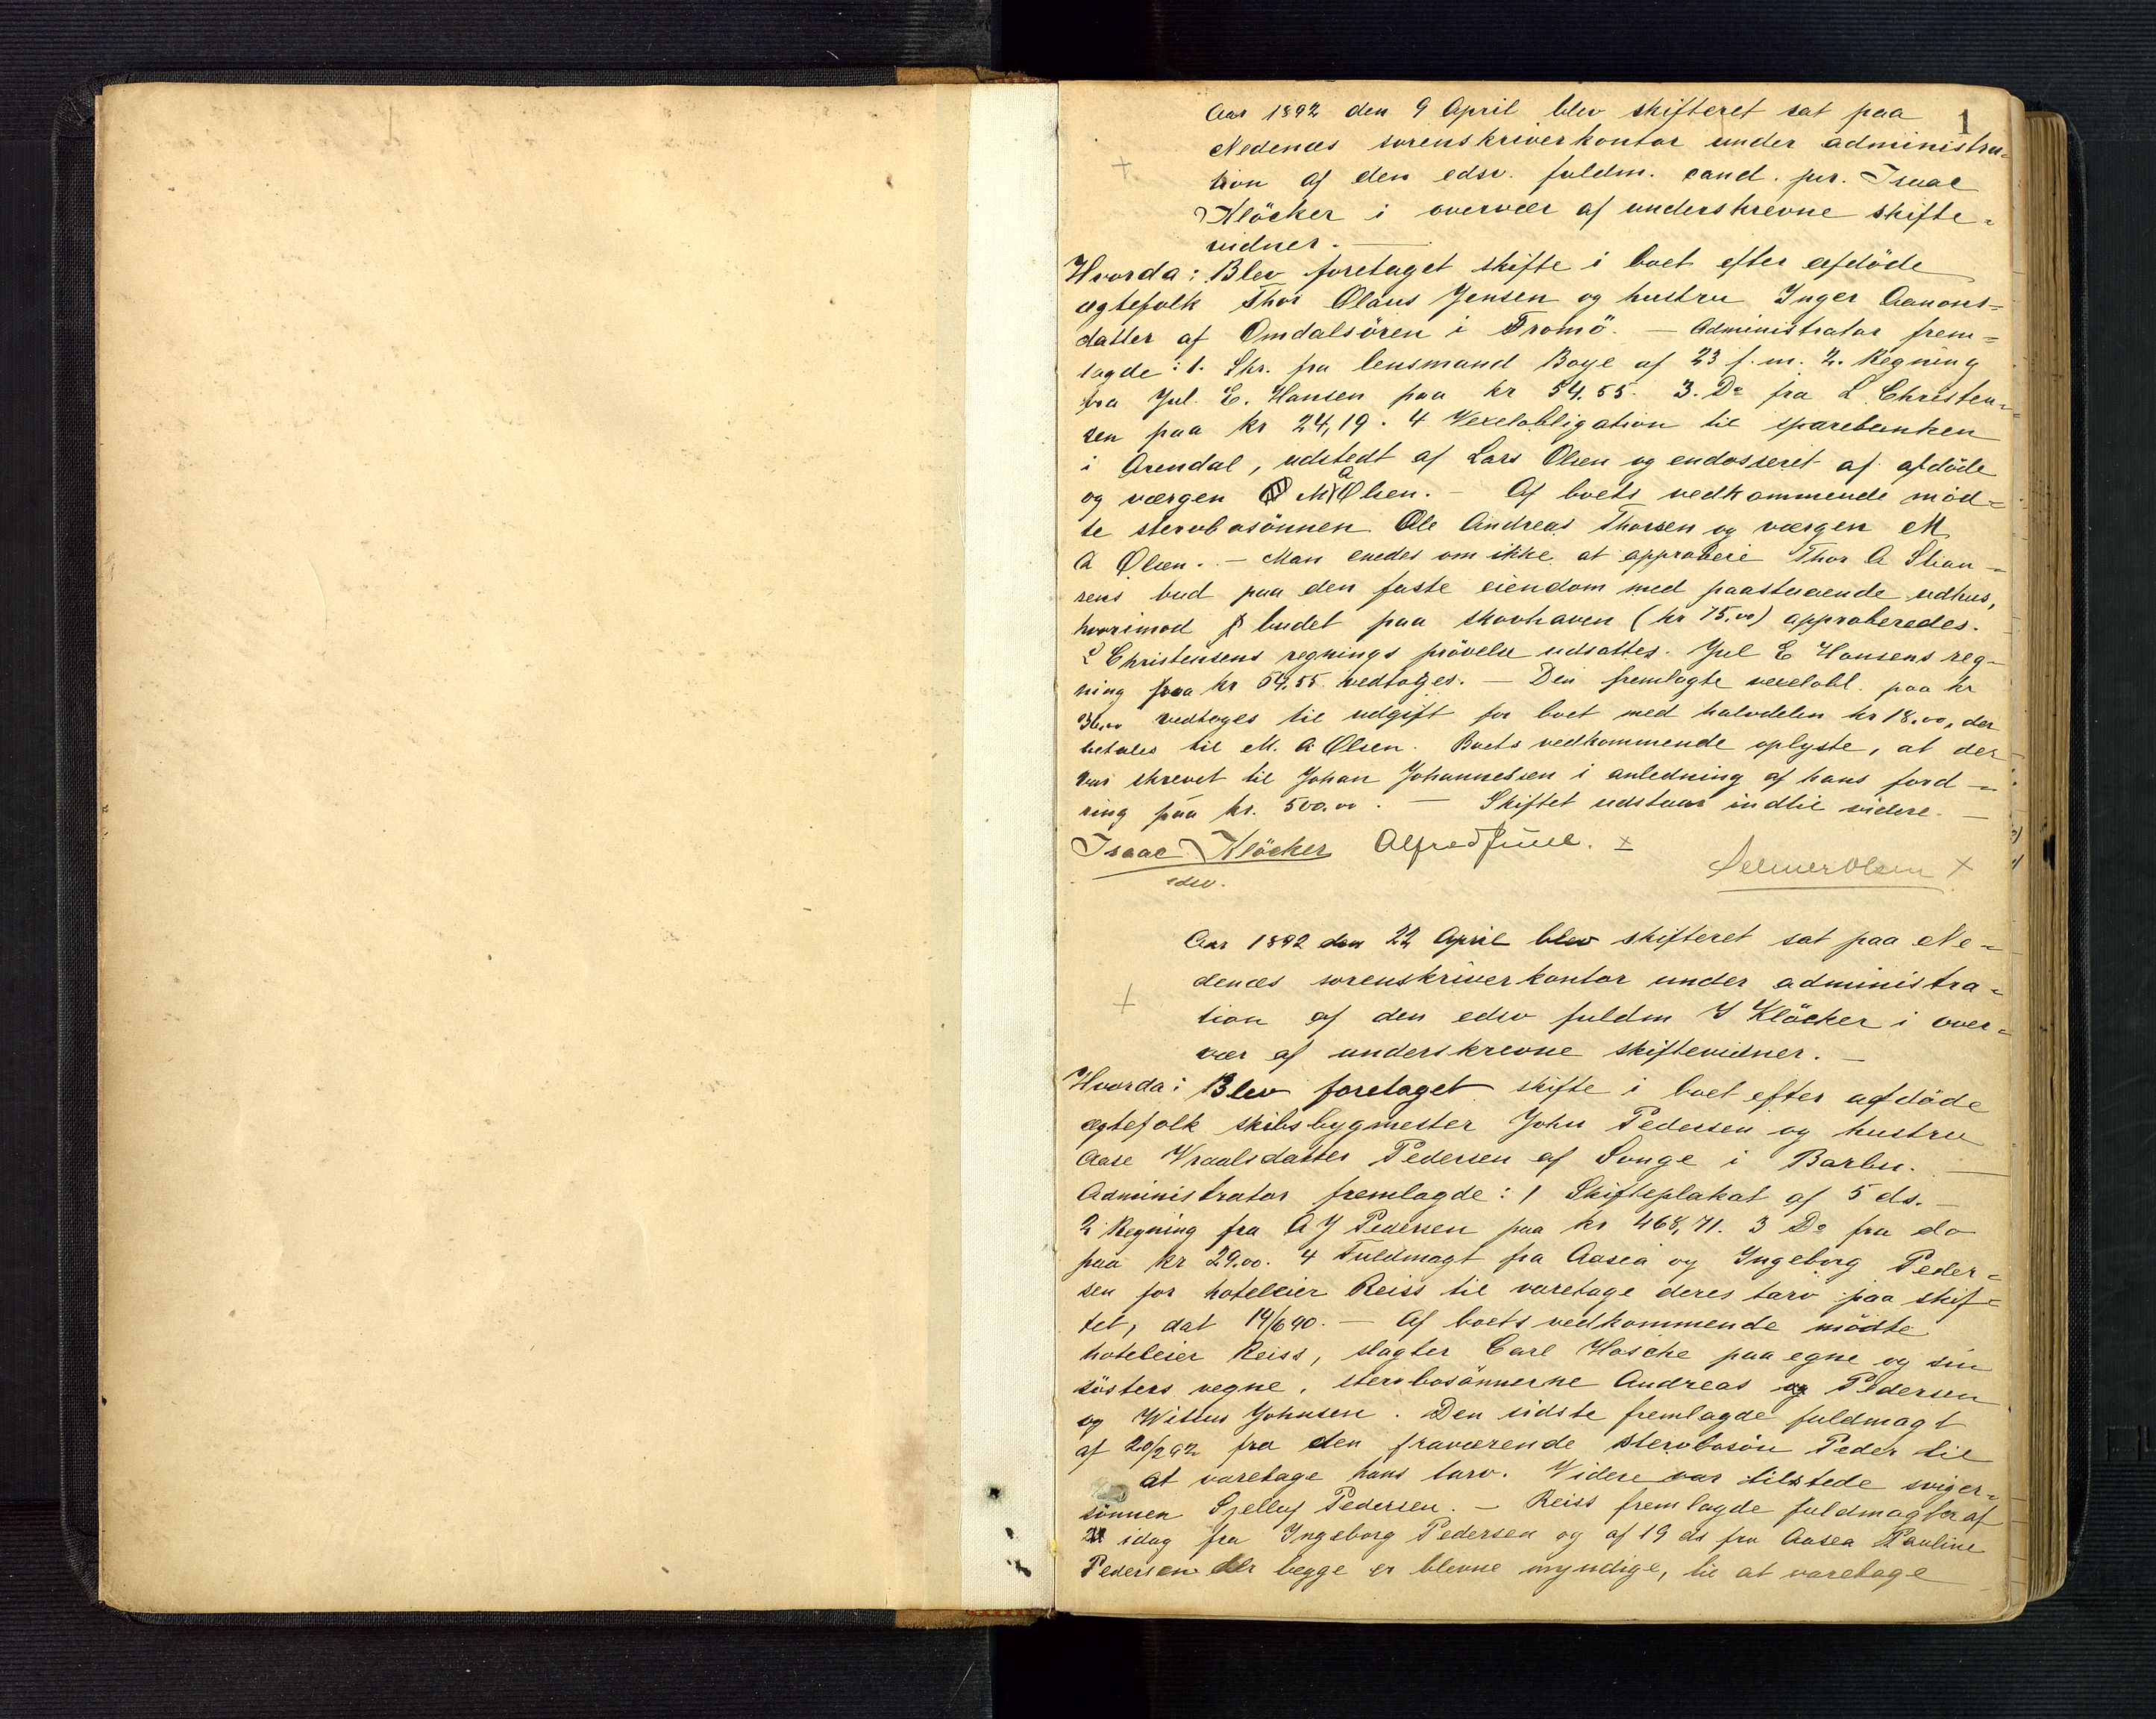 1
Aar 1892 den 9 April blev skifteret sat paa
Nedenæs sorenskriverkontor under administra-
tion af den edsv. fuldm. cand. jur. Isaac
Klöcker i overvær af underskrevne skifte-
vidner. —
Hvorda: Blev foretaget skifte i boet efter afdöde
ægtefolk Thor Olaus Jensen og hustru Inger Aanons-
datter af Omdalsören i Tromö. — Administrator frem-
lagde: 1. Skr. fra lensmand Boye af 23 f.m. 2. Regning
fra Jul. E. Hansen paa kr 54,55. 3. Do fra L. Christen-
sen paa kr 24,19. 4 Vexelobligation til sparebanken
i Arendal, udstedt af Lars Olsen og endosseret af afdöde
og værgen M A Olsen. — Af boets vedkommende möd-
te stervbosönnen Ole Andreas Thorsen og værgen M
A Olsen. — Man enedes om ikke at approbere Thor A Stian-
sens bud paa den faste eiendom med paastaaende udhus,
hvorimod budet paa skovhaven (kr 75,00) approberedes.
L Christensens regnings prövelse udsattes. Jul E Hansens reg-
ning paa kr 54,55 vedtoges. — Den fremlagte vexelobl. paa kr
36,00 vedtoges til udgift for boet med halvdelen kr 18,00, der
betales til M. A. Olsen. Boets vedkommende oplyste, at der
var skrevet til Johan Johannessen i anledning af hans ford-
ring paa kr. 500.00. — Skiftet udstaar indtil videre. —
Isaac Klöcker Alfred Juul. x
edsv.
Selmer Olsen x
Aar 1892 den 22 April blev skifteret sat paa Ne-
denæs sorenskriverkontor under administra-
tion af den edsv fuldm I Klöcker i over-
vær af underskrevne skiftevidner. —
Hvorda: Blev foretaget skifte i boet efter afdöde
ægtefolk skibsbygmester John Pedersen og hustru
Aase Vraalsdatter Pedersen af Songe i Barbu. —
Administrator fremlagde: 1 Skifteplakat af 5 ds. —
2 Regning fra A J Pedersen paa kr 468,71. 3 Do fra do
paa kr 29.00. 4 Fuldmagt fra Aasea og Ingeborg Peder-
sen for hoteleier Reiss til varetage deres tarv paa skif-
tet, dat 14/6 90. — Af boets vedkommende mödte
hoteleier Reiss, slagter Carl Hasche paa egne og sin
sösters vegne, stervbosönnerne Andreas Pedersen
og Wittus Johnsen. Den sidste fremlagde fuldmagt
af 20/2 92 fra den fraværende stervbosön Peder til
at varetage hans tarv. Videre var tilstede sviger-
sönnen Sjelluf Pedersen. — Reiss fremlagde fuldmagter af
idag fra Ingeborg Pedersen og af 19 ds fra Aasea Pauline
Pedersen der begge er blevne myndige, til at varetage